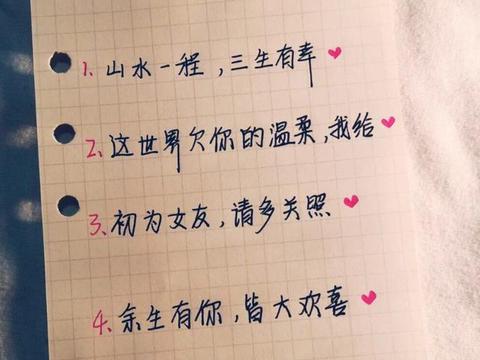 1. 山水一程，三生有幸
2. 这世界欠你的温柔，我给
3. 初为女友，请多关照
4. 余生有你，皆大欢喜